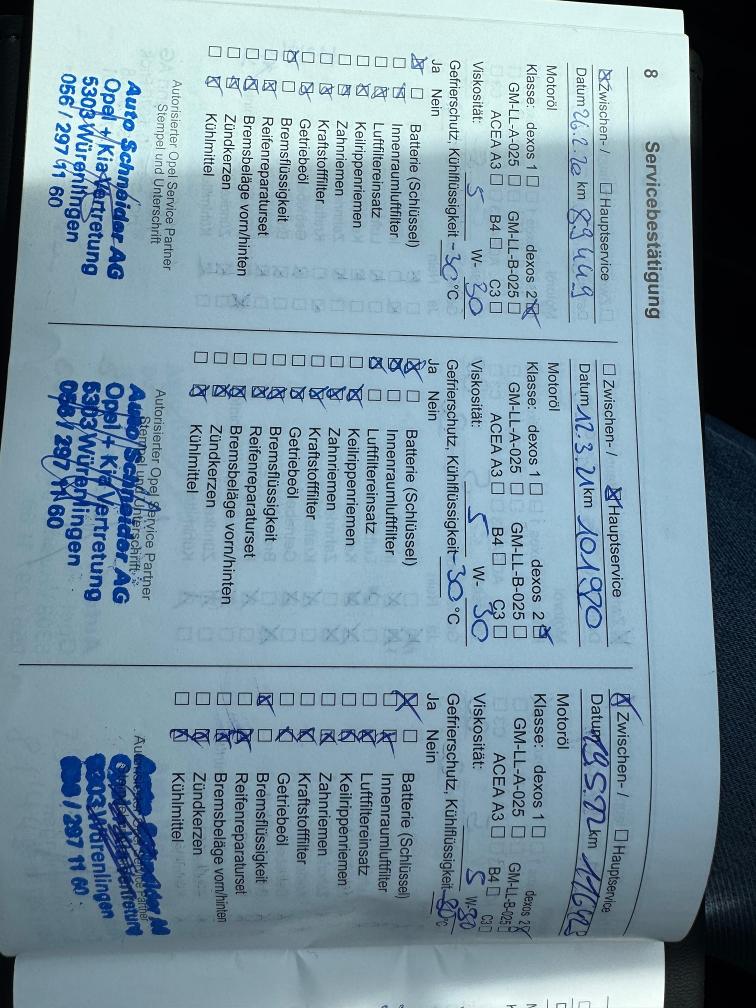 8 Servicebestätigung
☒ Zwischen- / ☐ Hauptservice
Datum 26.2.20 km 89449
Motoröl
Klasse: dexos 1 ☐ dexos 2 ☒
GM-LL-A-025 ☐ GM-LL-B-025 ☐
ACEA A3 ☐ B4 ☐ C3 ☐
Viskosität: 5 W- 30
Gefrierschutz, Kühlflüssigkeit -30 °C
Ja Nein
☒ ☐ Batterie (Schlüssel)
☐ ☒ Innenraumluftfilter
☐ ☒ Luftfiltereinsatz
☐ ☒ Keilrippenriemen
☐ ☒ Zahnriemen
☐ ☒ Kraftstofffilter
☐ ☒ Getriebeöl
☒ ☐ Bremsflüssigkeit
☐ ☒ Reifenreparaturset
☐ ☒ Bremsbeläge vorn/hinten
☐ ☒ Zündkerzen
☐ ☒ Kühlmittel
Autorisierter Opel Service Partner
Stempel und Unterschrift
Auto Schneider AG
Opel + Kia Vertretung
5303 Würenlingen
056 / 297 11 60
☐ Zwischen- / ☒ Hauptservice
Datum 12.3.21 km 101970
Motoröl
Klasse: dexos 1 ☐ dexos 2 ☒
GM-LL-A-025 ☐ GM-LL-B-025 ☐
ACEA A3 ☐ B4 ☐ C3 ☐
Viskosität: 5 W- 30
Gefrierschutz, Kühlflüssigkeit -30 °C
Ja Nein
☒ ☐ Batterie (Schlüssel)
☒ ☐ Innenraumluftfilter
☒ ☐ Luftfiltereinsatz
☐ ☒ Keilrippenriemen
☐ ☒ Zahnriemen
☐ ☒ Kraftstofffilter
☐ ☒ Getriebeöl
☐ ☒ Bremsflüssigkeit
☐ ☒ Reifenreparaturset
☐ ☒ Bremsbeläge vorn/hinten
☐ ☒ Zündkerzen
☐ ☒ Kühlmittel
Autorisierter Opel Service Partner
Stempel und Unterschrift
Auto Schneider AG
Opel + Kia Vertretung
5303 Würenlingen
056 / 297 11 60
☒ Zwischen- / ☐ Hauptservice
Datum 19.5.22 km
Motoröl
Klasse: dexos 1 ☐ dexos 2 ☒
GM-LL-A-025 ☐ GM-LL-B-025 ☐
ACEA A3 ☐ B4 ☐ C3 ☐
Viskosität: 5 W- 30
Gefrierschutz, Kühlflüssigkeit °C
Ja Nein
☒ ☐ Batterie (Schlüssel)
☐ ☒ Innenraumluftfilter
☐ ☒ Luftfiltereinsatz
☐ ☒ Keilrippenriemen
☐ ☒ Zahnriemen
☐ ☒ Kraftstofffilter
☐ ☒ Getriebeöl
☒ ☐ Bremsflüssigkeit
☐ ☒ Reifenreparaturset
☐ ☒ Bremsbeläge vorn/hinten
☐ ☒ Zündkerzen
☐ ☒ Kühlmittel
5303 Würenlingen
056 / 297 11 60